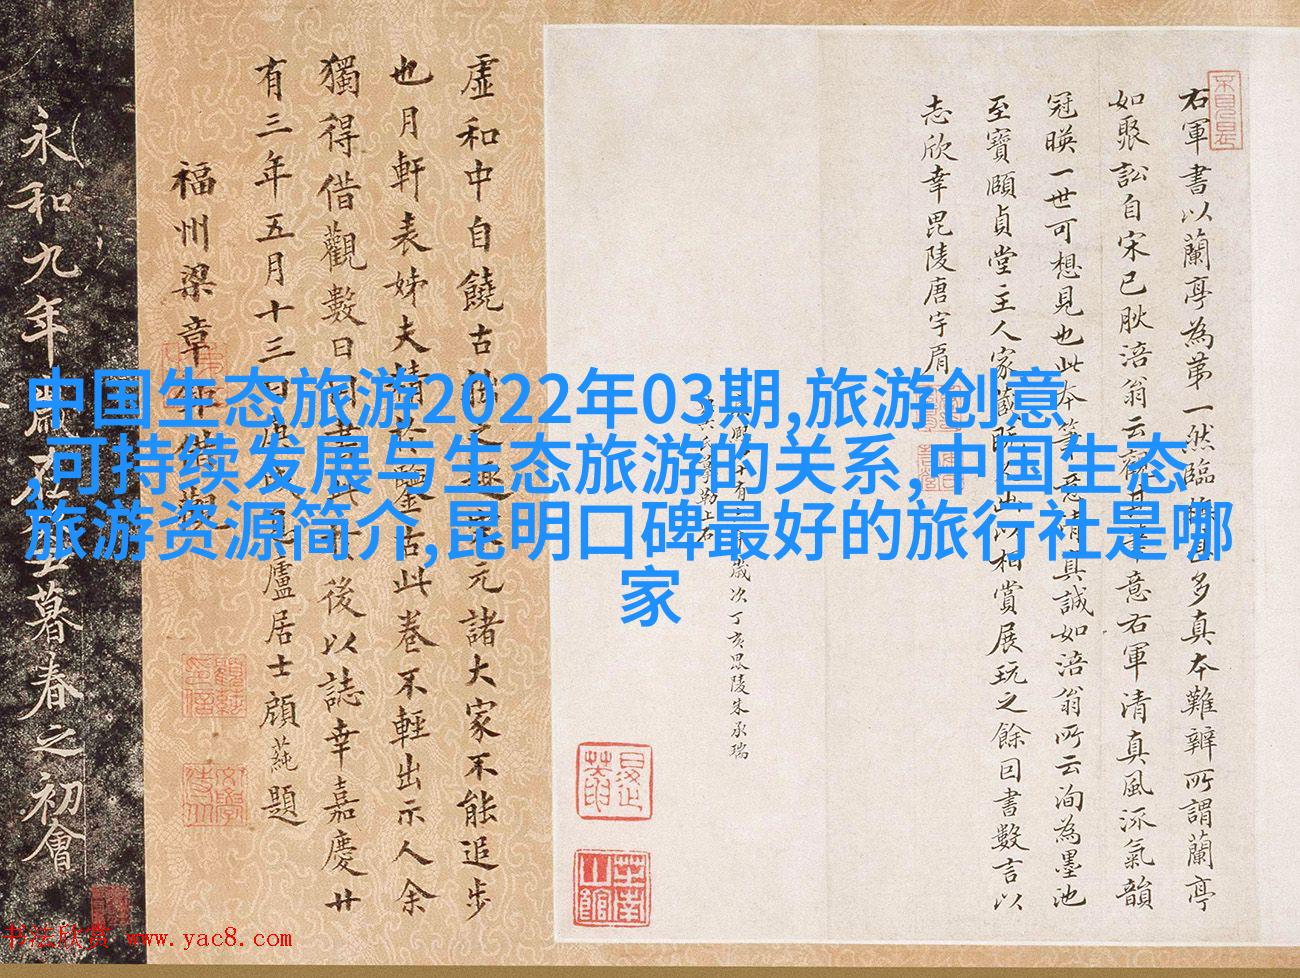 右軍書以蘭亭為第一然臨摹甚多真本難辨所謂蘭亭
如聚訟自宋已
冠暎一世可想見也此本筆意清真誠如涪翁所云洵為墨池
至寶頤貞堂主人家藏
出以相賞展玩之餘因書數言以
志欣幸毘陵唐宇肩
歲次丁亥毘陵朱承瑞
虛和中自饒古
元諸大家不能追步
也月軒表姊夫精於鑒古此卷不輕出示人余
獨得借觀數日
後以誌幸嘉慶廿
有三年五月十三日
廬居士顧蒓題
福州梁章
永和九年歲
暮春之初會
中国生态旅游2022年03期,旅游创意
,可持续发展与生态旅游的关系,中国生态
旅游资源简介,昆明口碑最好的旅行社是哪
家
书法欣赏 www.yac8.com